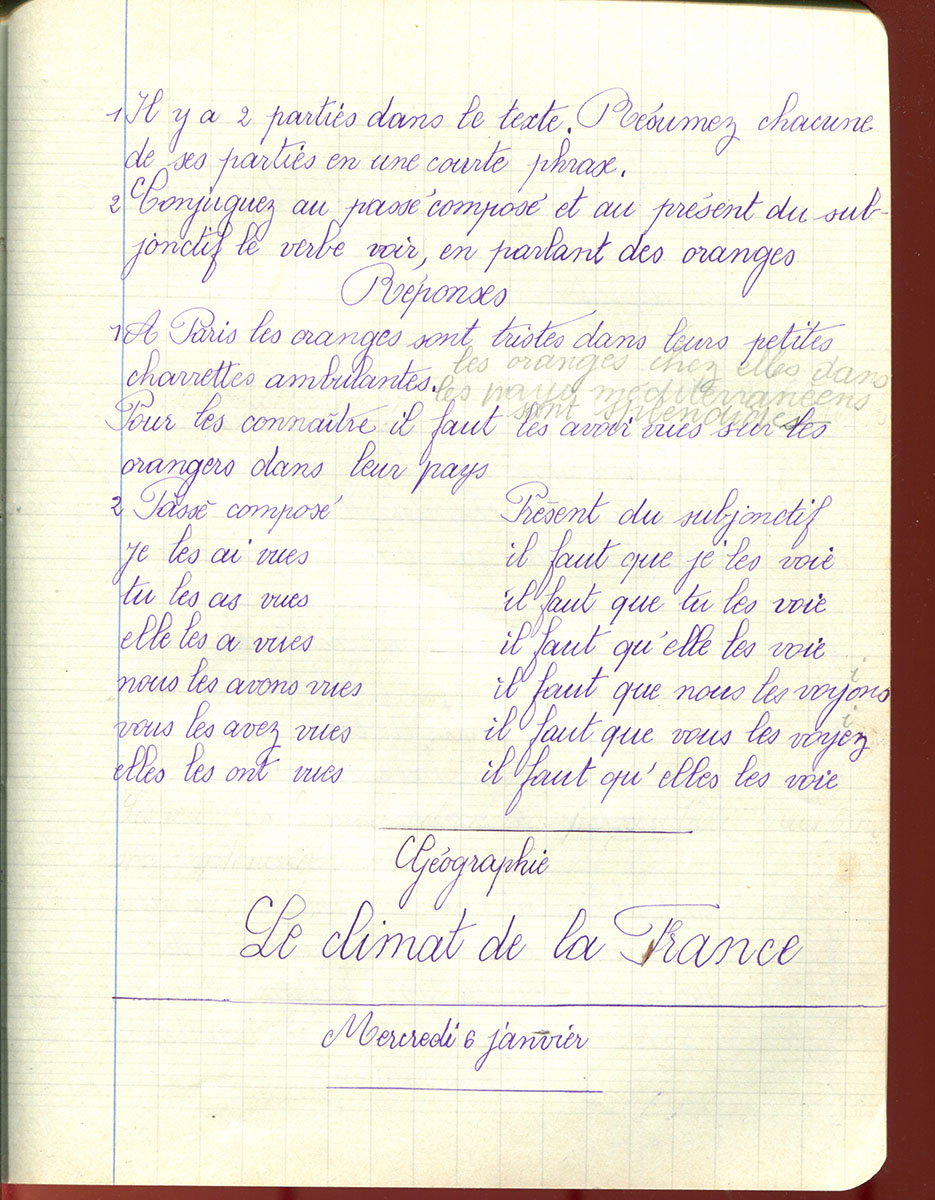 1 Il y a 2 parties dans le texte. Résumez chacune
de ses parties en une courte phrase.
2 Conjuguez au passé composé et au présent du sub-
jonctif le verbe voir, en parlant des oranges
Réponses
1 A Paris les oranges sont tristes dans leurs petites
charrettes ambulantes. les oranges chez elles dans
les pays méditerranéens
sont splendides
Pour les connaître il faut les avoir vues sur les
orangers dans leur pays
2 Passé composé Présent du subjonctif
je les ai vues il faut que je les voie
tu les as vues il faut que tu les voie
elle les a vues il faut qu'elle les voie
nous les avons vues il faut que nous les voyons
i
vous les avez vues il faut que vous les voyez
i
elles les ont vues il faut qu'elles les voie
Géographie
Le climat de la France
Mercredi 6 janvier